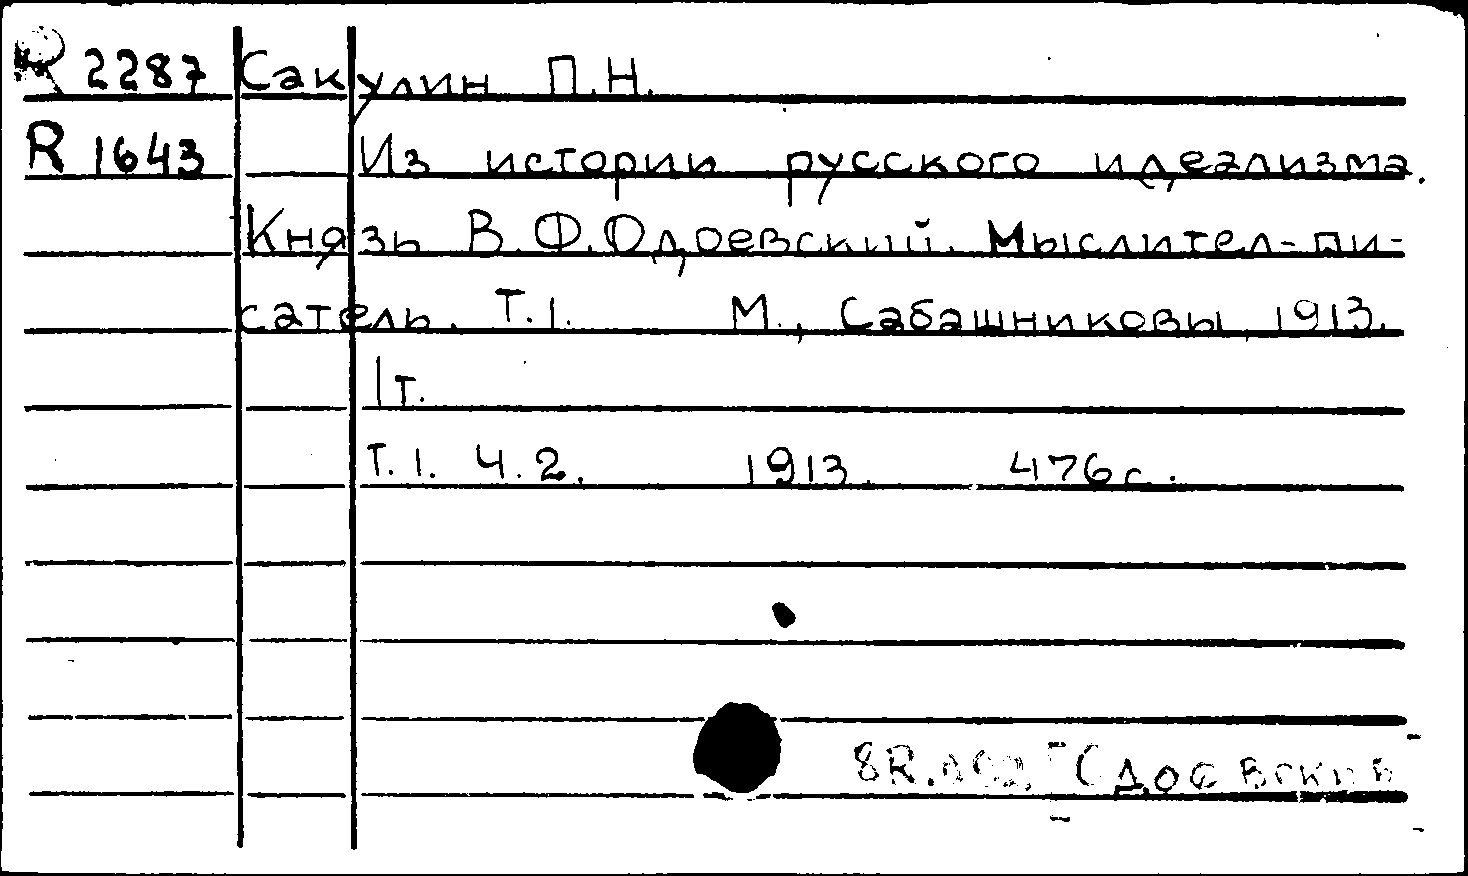 R 2287 Сакулин П.Н.
R 1643 Из истории русского идеализма.
Князь В.Ф.Одоевский. Мыслител-пи-
сатель. Т.1. М., Сабашниковы, 1913.
1т.
Т.1. Ч.2. 1913. 476с.
8R.